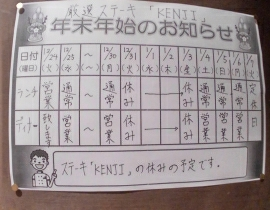 厳選ステーキ「KENJI」
年末年始のお知らせ
日付 12/24 12/25 ～ 12/30 12/31 1/1 1/2 1/3 1/4 1/5 1/6 1/7
(曜日) (火) (水) (木) (金) (土) (日) (月) (火)
ランチ 通常 営業 ～ 通常 休み → 休み 通常 通常 通常 定休日
ディナー 致します 営業 ～ 営業 休み → 休み 営業 営業 営業
ステーキ「KENJI」の休みの予定です。